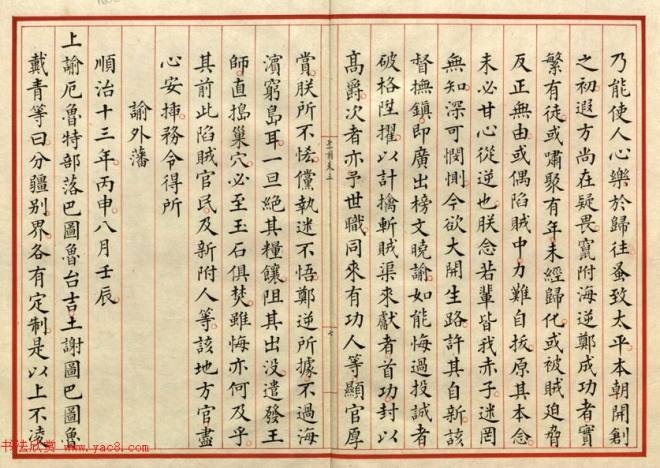 乃能使人心樂於歸往蚤致太平本朝開創
之初遐方尚在疑畏竄附海逆鄭成功者實
繁有徒或嘯聚有年未經歸化或被賊迫脅
反正無由或偶陷賊中力難自拔原其本念
未必甘心從逆也朕念若輩皆我赤子迷罔
無知深可憫惻今欲大開生路許其自新該
督撫鎮即廣出榜文曉諭如能悔過投誠者
破格陞擢以計擒斬賊渠來獻者首功封以
高爵次者亦予世職同來有功人等顯官厚
賞朕所不恡儻執迷不悟鄭逆所據不過海
濱窮島耳一旦絕其糧饟阻其出没遣發王
師直搗巢穴必至玉石俱焚雖悔亦何及乎
其前此陷賊官民及新附人等該地方官盡
心安揷務令得所
諭外藩
順治十三年丙申八月壬辰
上諭厄魯特部落巴圖魯台吉土謝圖巴圖魯
戴青等曰分疆別界各有定制是以上不凌
七
书法欣赏 www.yac8.com